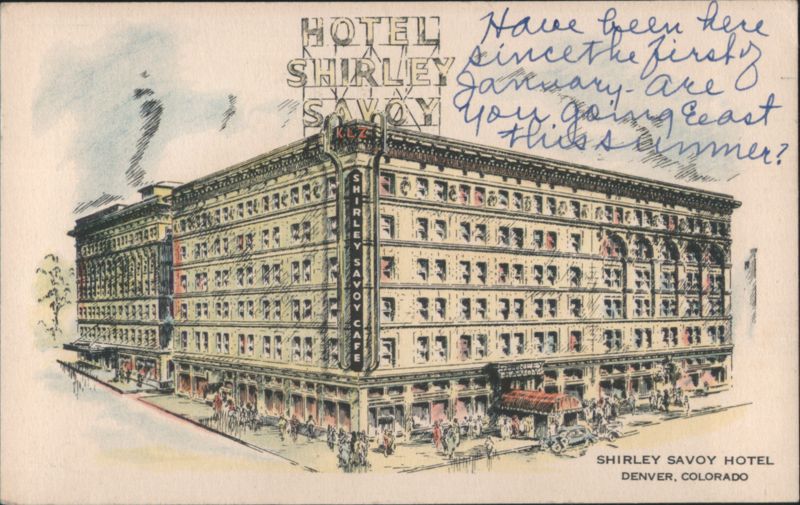 HOTEL
SHIRLEY
SAVOY
KLZ
SHIRLEY SAVOY CAFE
Have been here
since the first of
January - are
you going East
this summer?
SHIRLEY SAVOY HOTEL
DENVER, COLORADO